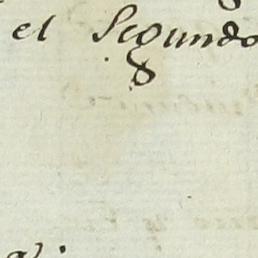 el Segundo